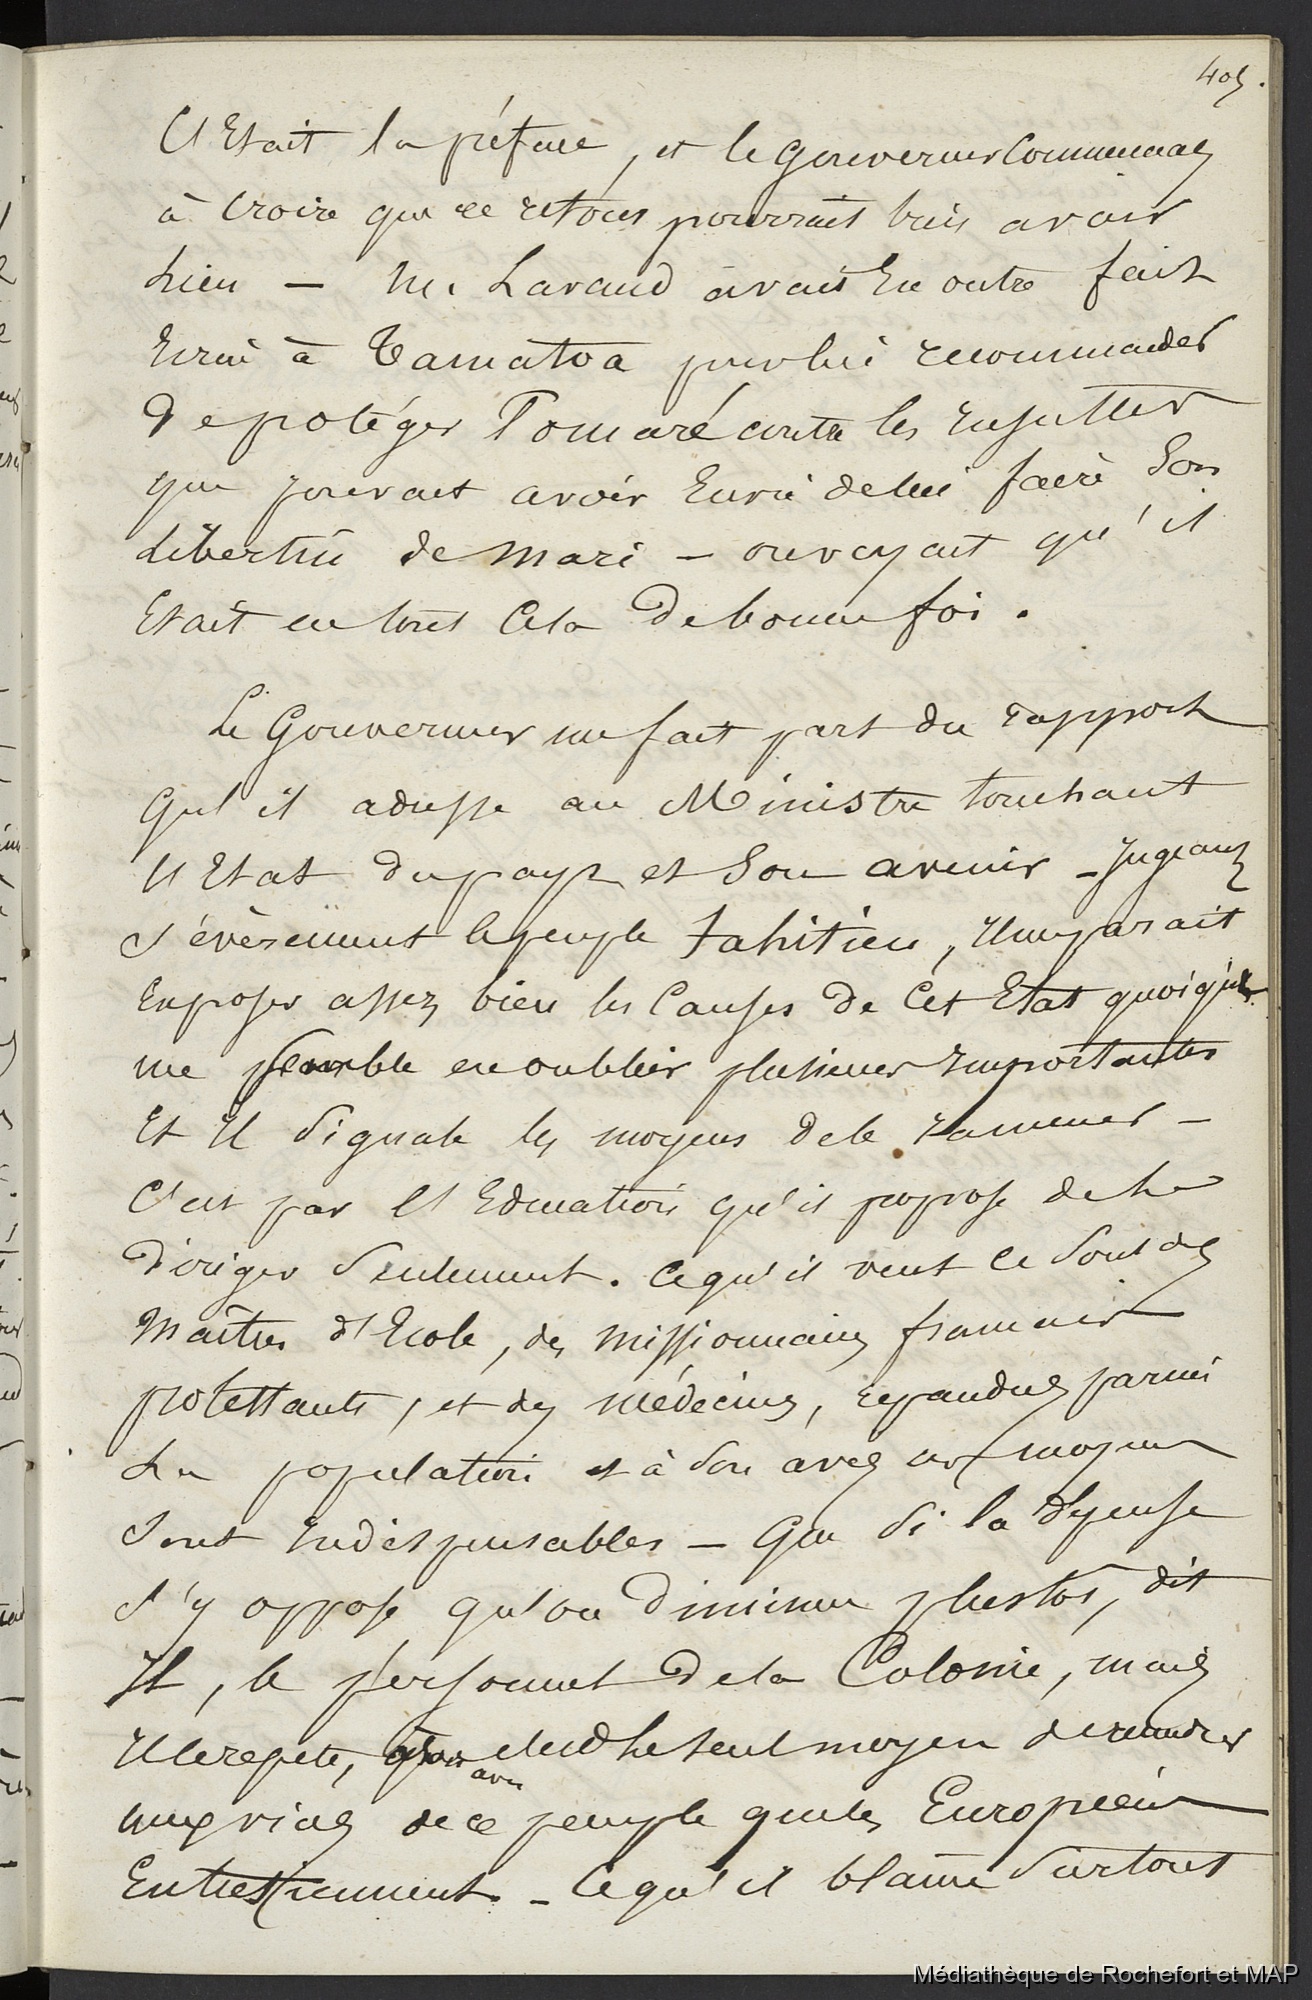 405.
C'était la préface, et le gouverneur commençait
à croire que ce retour pourrait bien avoir
Lieu — Mr. Lavaud avait En outre fait
Ecrire à Tamatoa pour lui recommander
De protéger Pomaré contre les Insultes
que pouvait avoir Envie de lui faire Son
Libertin de Mari — on voyait qu'il
Etait en tout Cela De bonne foi.
Le Gouverneur me fait part du rapport
qu'il adresse au Ministre touchant
L'Etat du pays et Son avenir — Jugeant
Sévèrement le peuple tahitien, Il me parait
Exposer assez bien les Causes De Cet Etat quoiqu'il
me Semble en oublier plusieurs Importantes
Et Il Signale les moyens de le ramener —
C'est par l'Education qu'il propose de le
Diriger Seulement. Ce qu'il veut Ce Sont des
Maîtres d'Ecole, des Missionnaires francais
protestants, et des médecins, repandus parmi
La population et à Son avis ces moyens
Sont Indispensables — Que Si la dépense
S'y oppose qu'on Diminue plustot, dit
Il, le personnel De la Colonie, mais
Il le repete, c'est là le seul moyen de
avec
de ce peuple que les Européens
Entretiennent. — Ce qu'il blame Surtout
Médiathèque de Rochefort et MAP